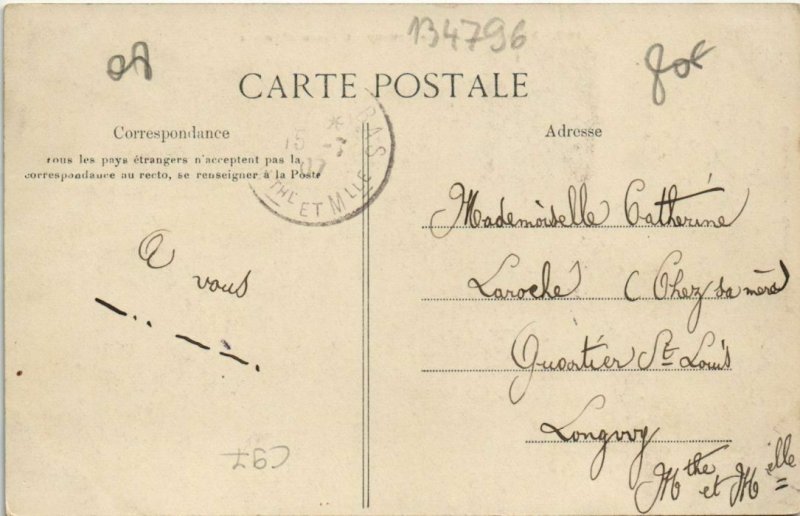 134796
CARTE POSTALE
Correspondance
Tous les pays étrangers n'acceptent pas la
correspondance au recto, se renseigner à la Poste
A vous
Adresse
Mademoiselle Catherine
Laroche (Chez sa mère)
Quartier St Louis
Longwy
Mthe et Mielle
RAS
15
07
THE ET MLLE
C97